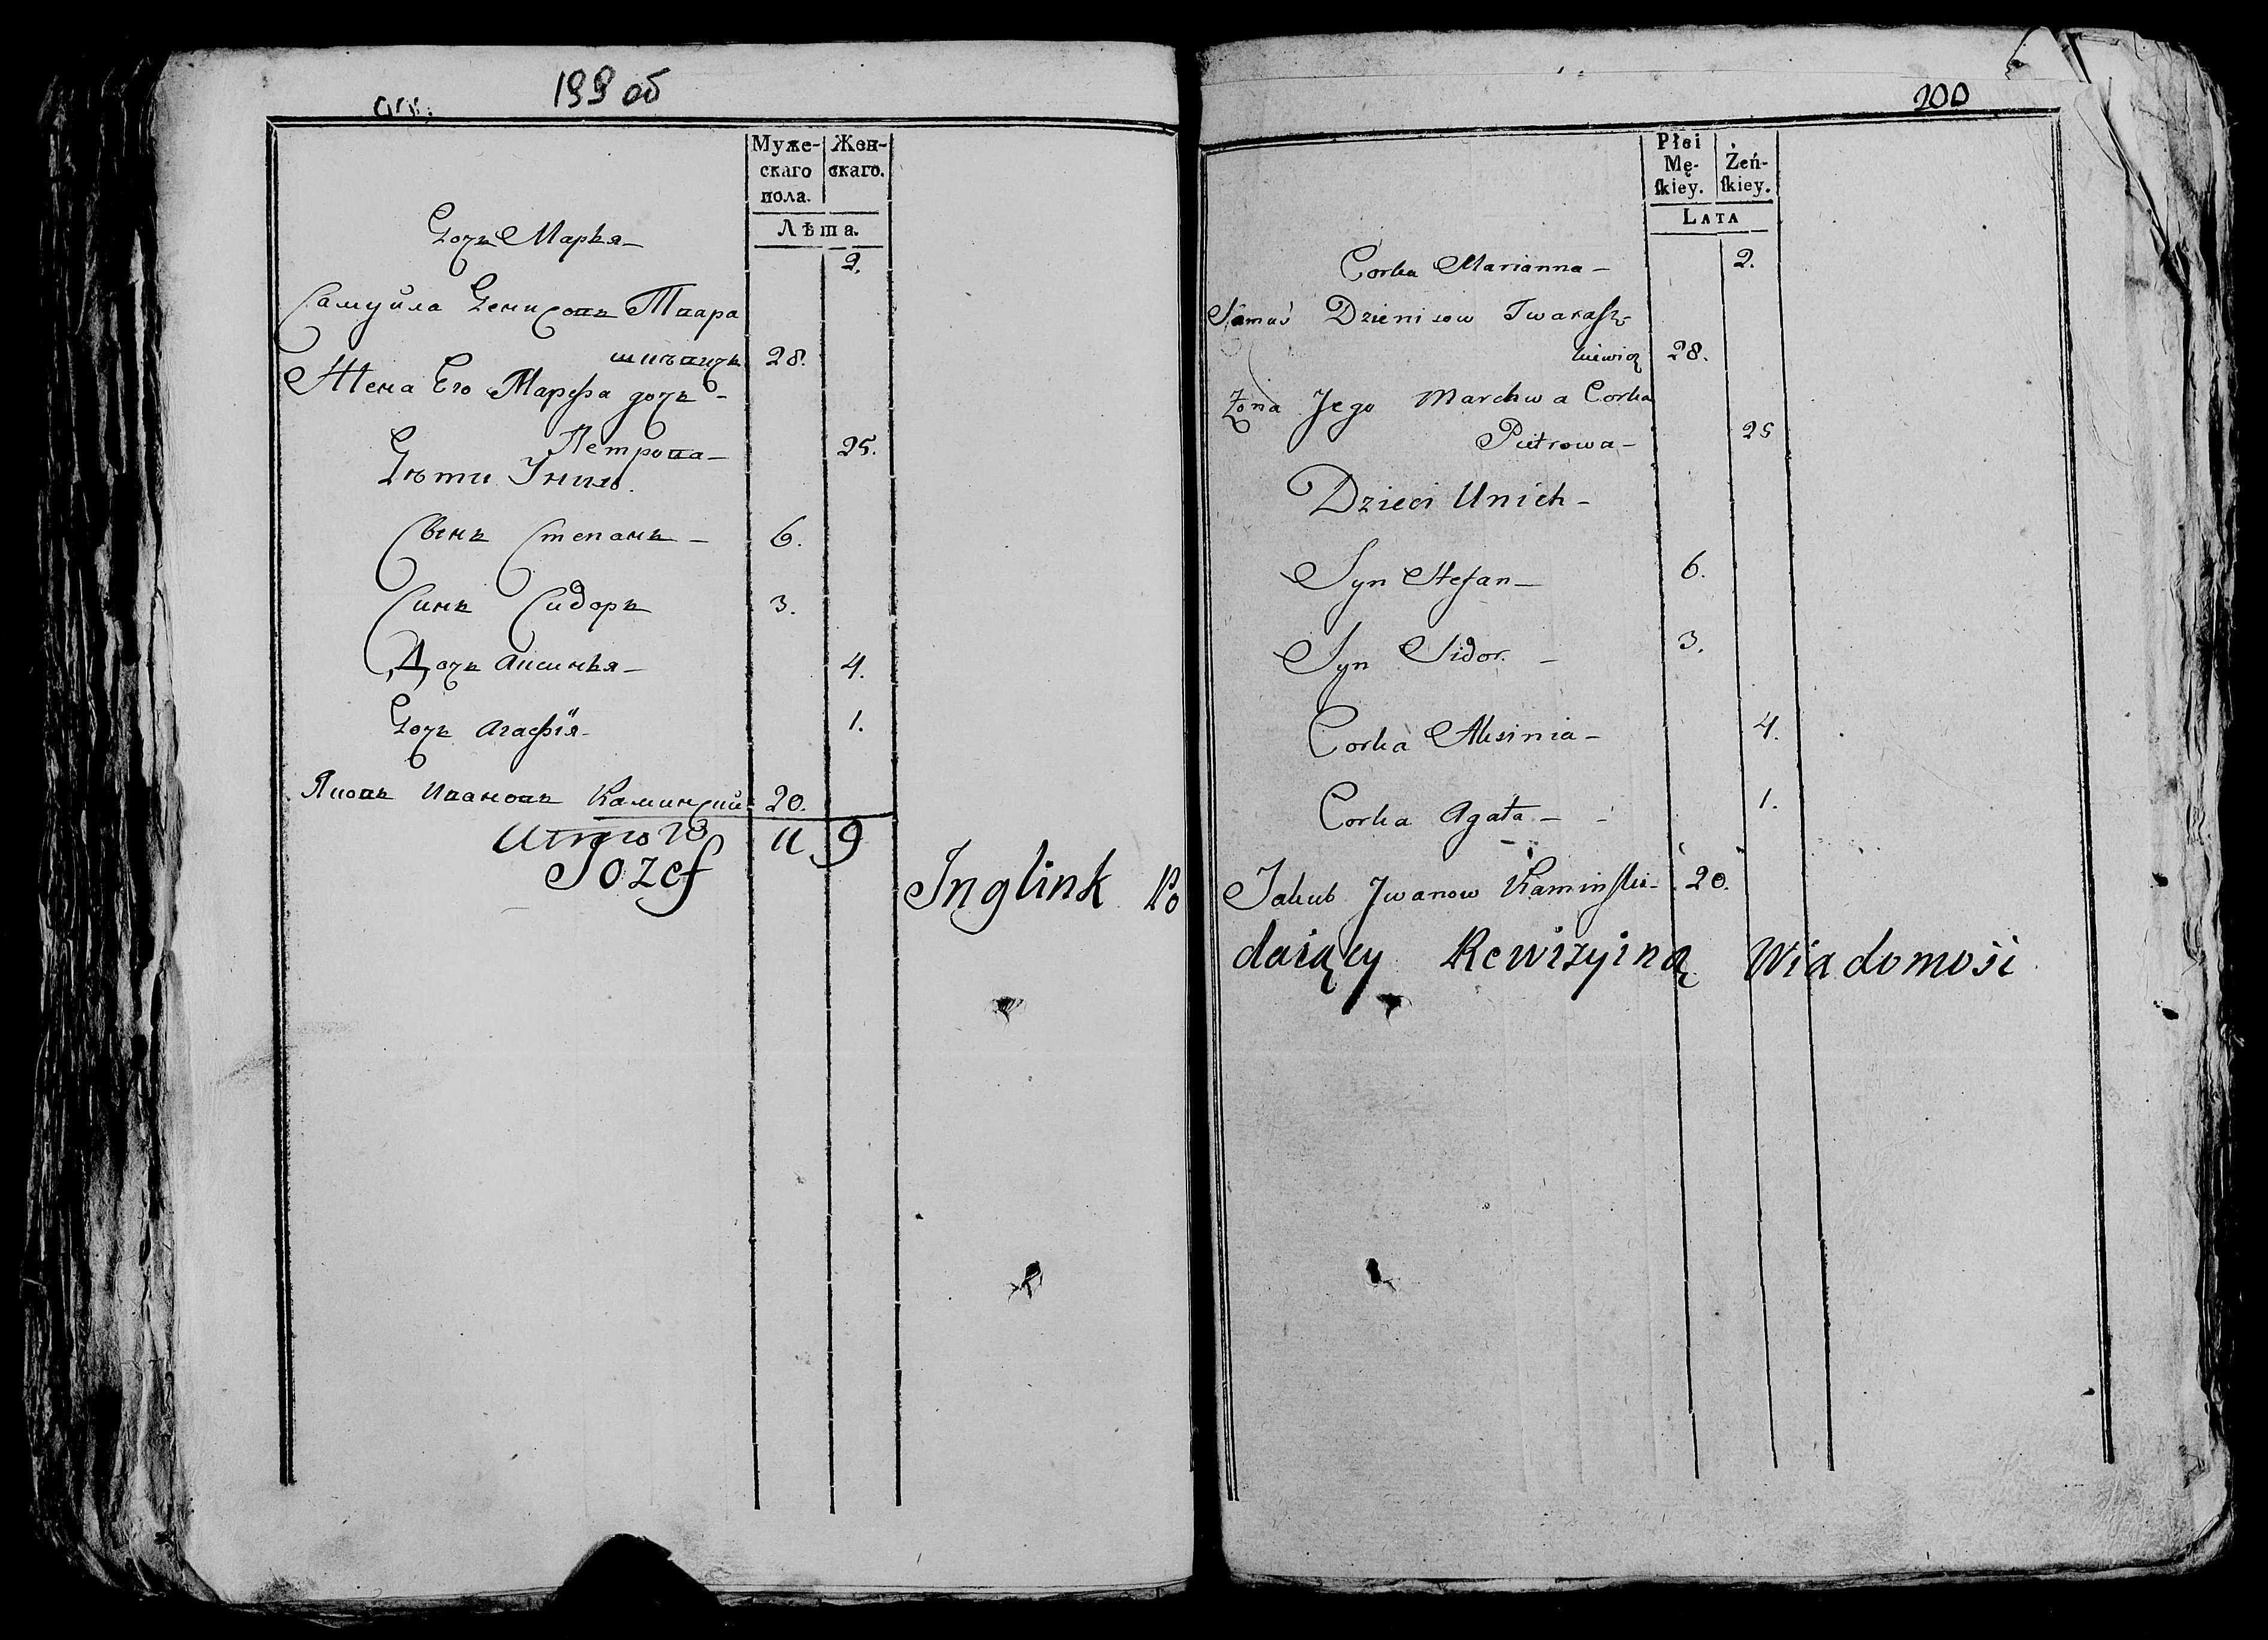 199 об
Муже- Жен-
скаго скаго.
пола.
Лѣта.
Дочь Марья — 2.
Самуйла Денисовъ Твара
шкѣвичъ 28.
Жена Его Марфа дочь -
Петрова — 25.
Дѣти Ихъ
Сынъ Степанъ — 6.
Синъ Сидоръ 3.
Дочь Аксинья — 4.
Дочь Агафія - 1.
Яковъ Ивановъ Каминский 20.
Итого 11 9
Jozef Inglink Po
200
Płci
Mę- Żeń-
ſkiey. ſkiey.
LATA
Corka Marianna — 2.
Dzienisow Twaraſz-
kiewicz 28.
Żona Jego Marchwa Corka
Pietrowa — 25
Dzieci Unich —
Syn Stefan — 6.
Syn Sidor. — 3.
Corka Aksinia — 4.
Corka Agata — 1.
Jakub Jwanow Kaminſki - 20.
daiący Rewizyiną Wiadomośi